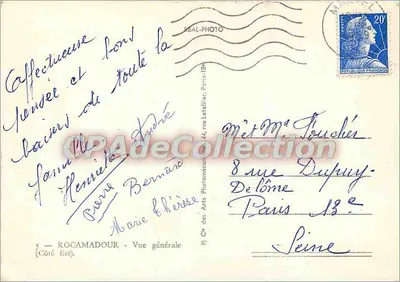 Affectueuse
pensée et bons
baisers de toute la
famille
Henriette André
Pierre Bernard
Marie Thérèse
5 — ROCAMADOUR - Vue générale
(Côté Est).
REAL-PHOTO
44, rue Letellier, Paris-15e
20F
Mr et Me Fouchés
8 rue Dupuy-
De Lôme
Paris 13e
Seine
CPADeCollection